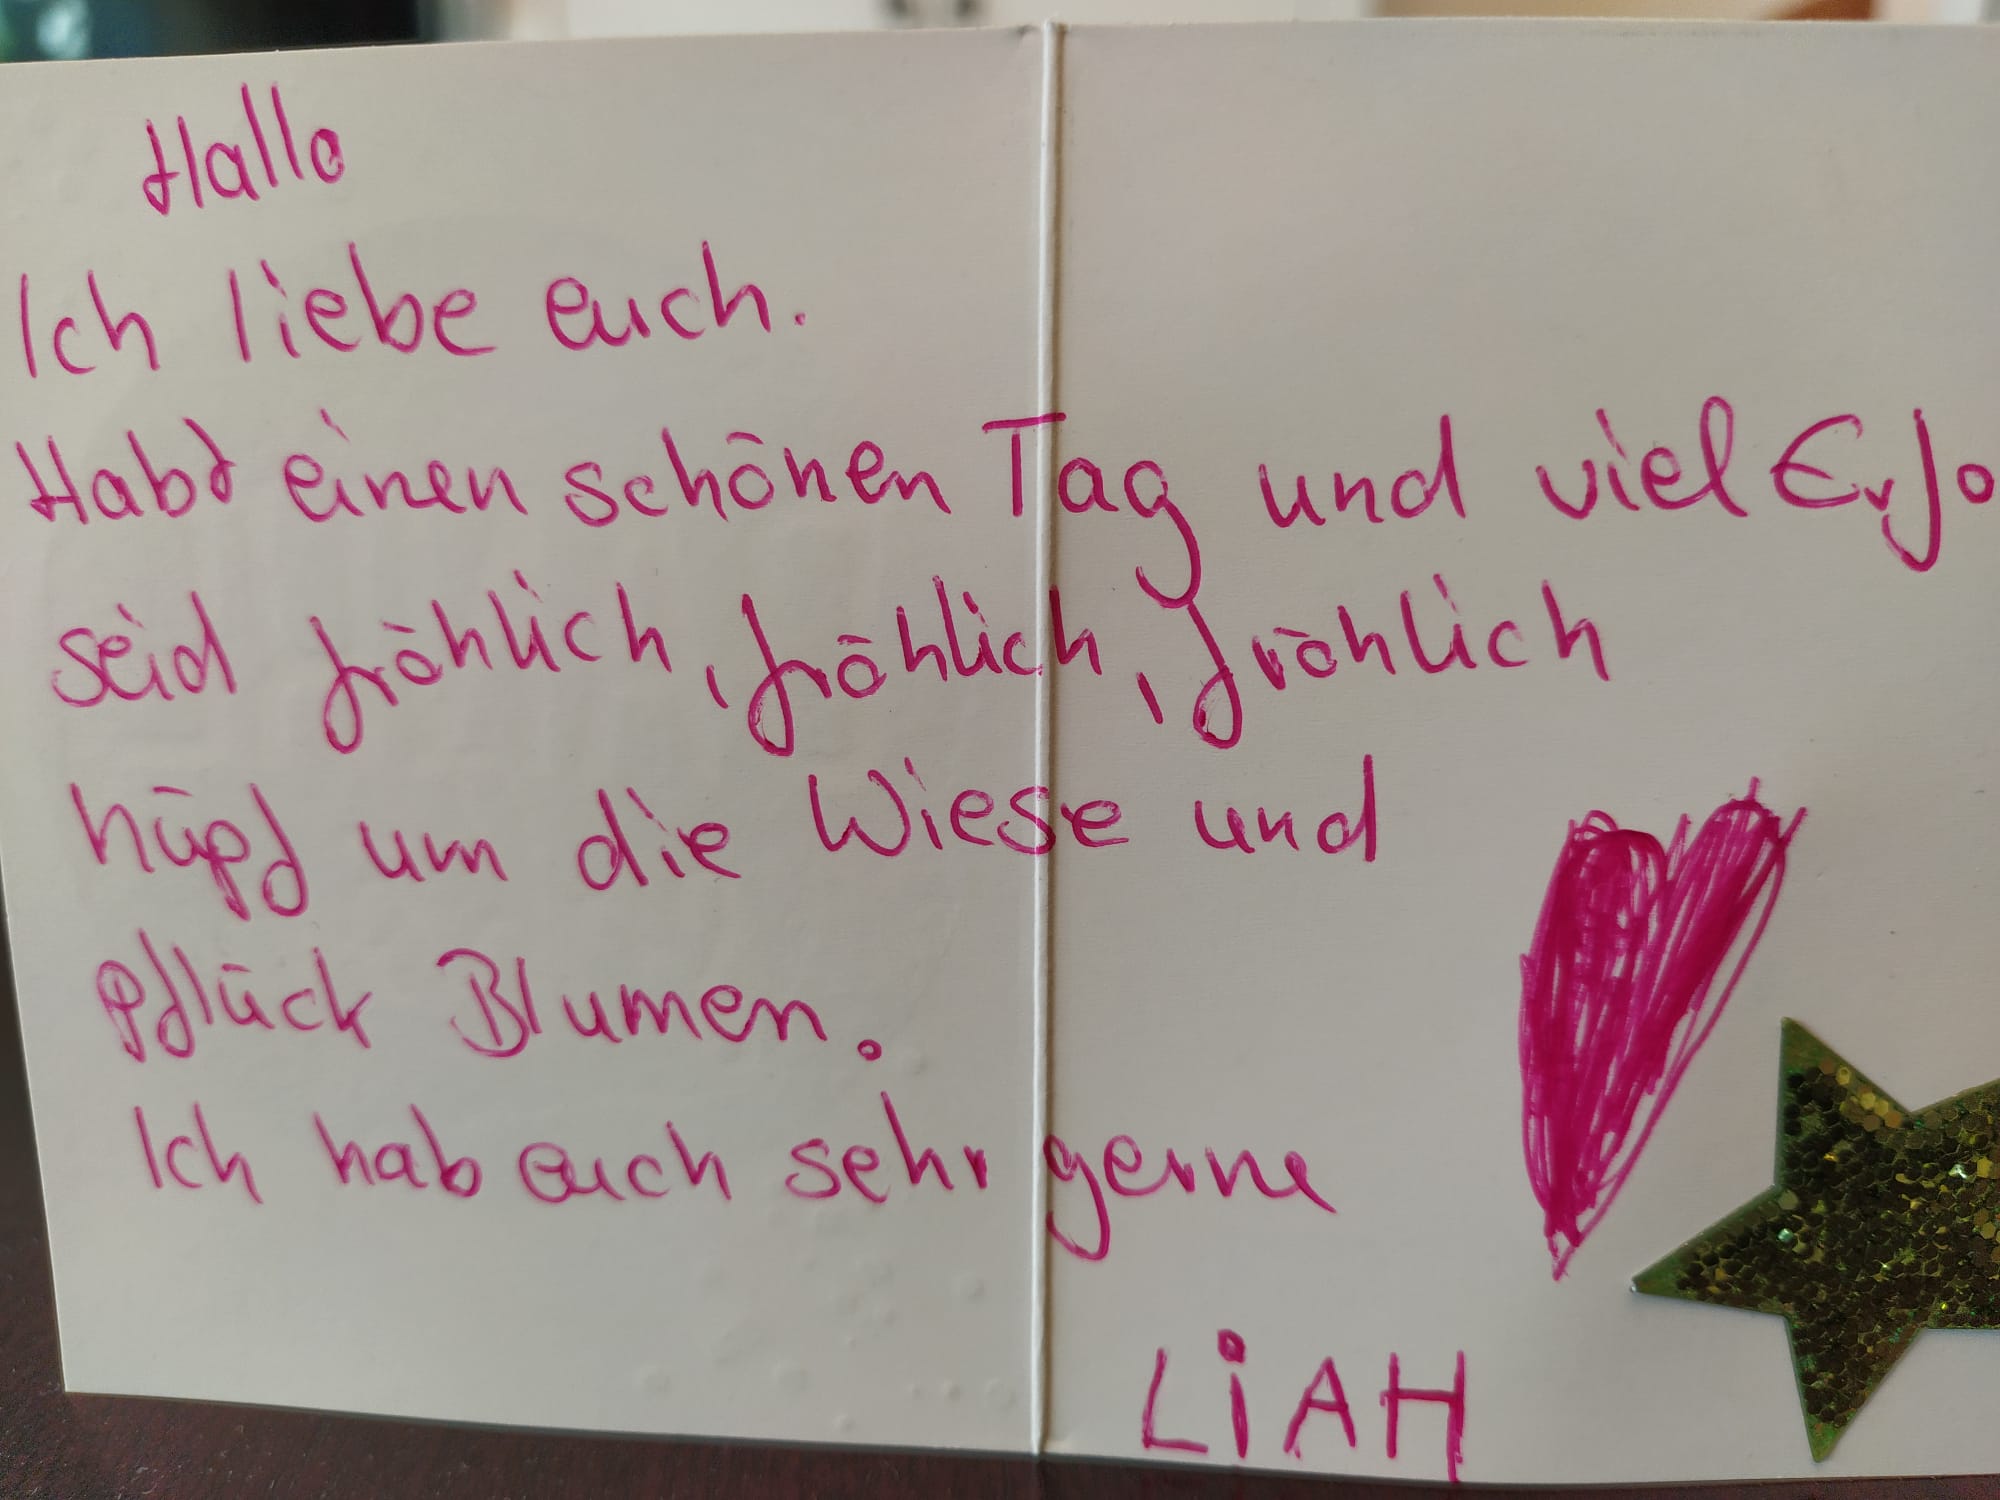 Hallo
Ich liebe euch.
Habt einen schönen Tag und viel Erfo
seid fröhlich, fröhlich, fröhlich
hüpf um die Wiese und
pflück Blumen.
Ich hab euch sehr gerne
LiAH